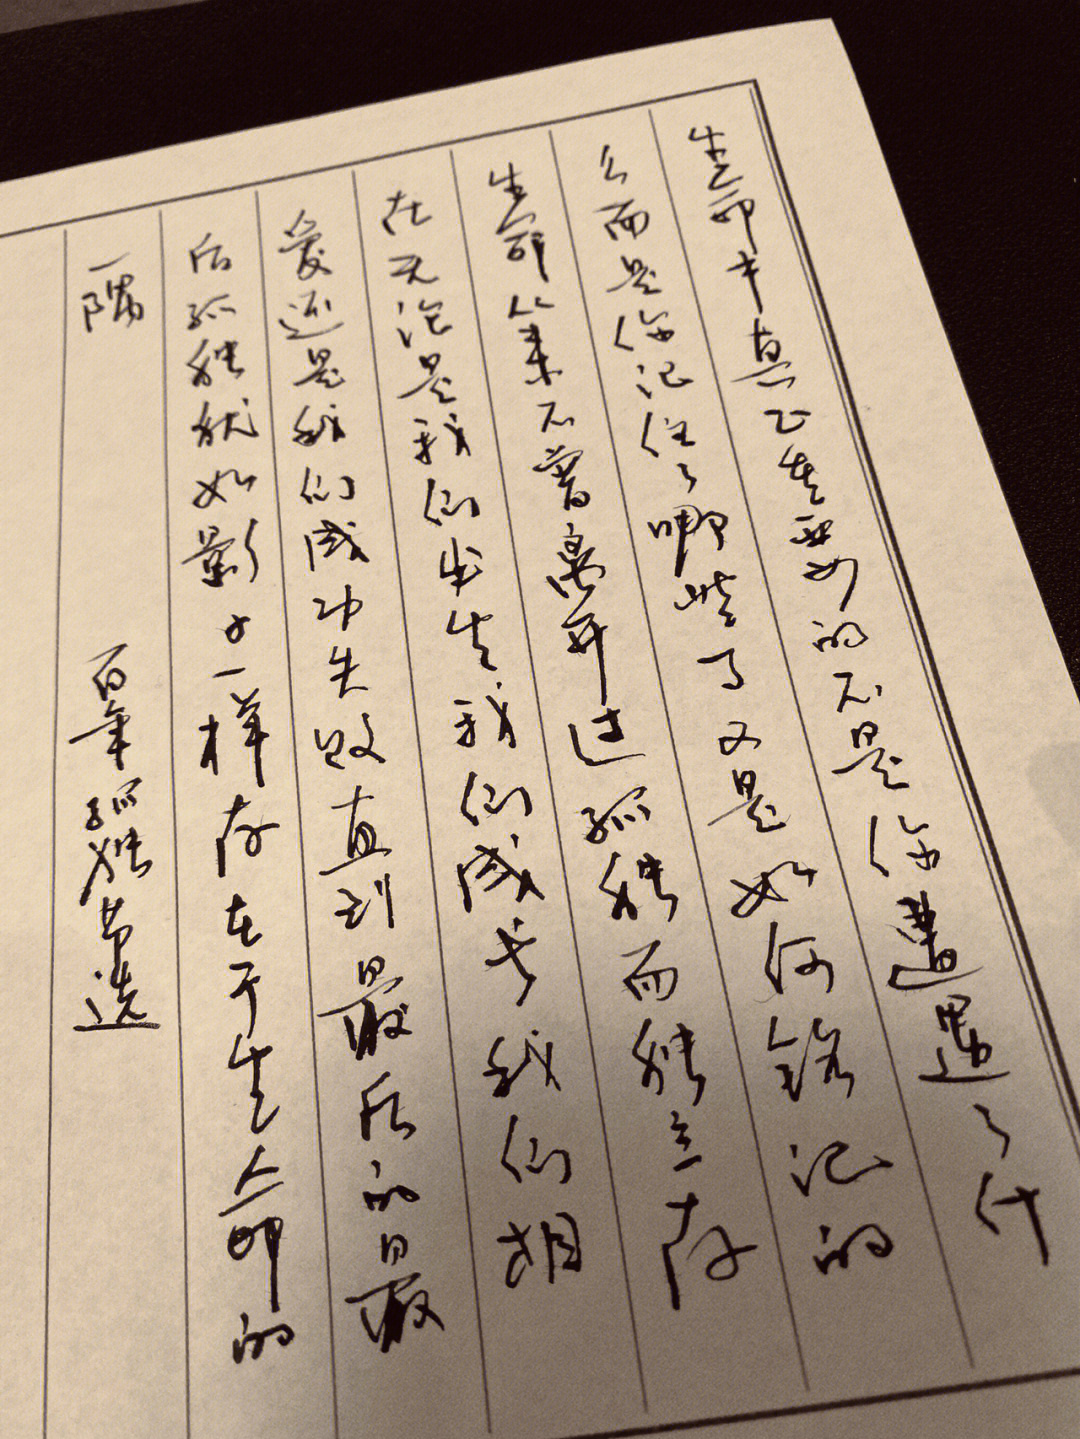 生命中真正重要的不是你遭遇了什
么而是你记住了哪些事又是如何铭记的
生命从来不曾离开过孤独而独立存
在无论是我们出生我们成长我们相
爱还是我们成功失败直到最后的最
后孤独犹如影子一样存在于生命的
一隅
百年孤独节选